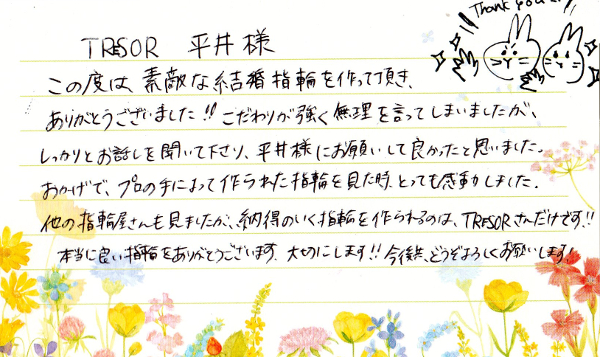 Thank you!!
TRESOR 平井様
この度は、素敵な結婚指輪を作って頂き、
ありがとうございました!! こだわりが強く無理を言ってしまいましたが、
しっかりとお話しを聞いて下さり、平井様にお願いして良かったと思いました。
おかげで、プロの手によって作られた指輪を見た時、とっても感動しました。
他の指輪屋さんも見ましたが、納得のいく指輪を作られるのは、TRESORさんだけです!!
本当に良い指輪をありがとうございます。大切にします!! 今後共、どうぞよろしくお願いします!